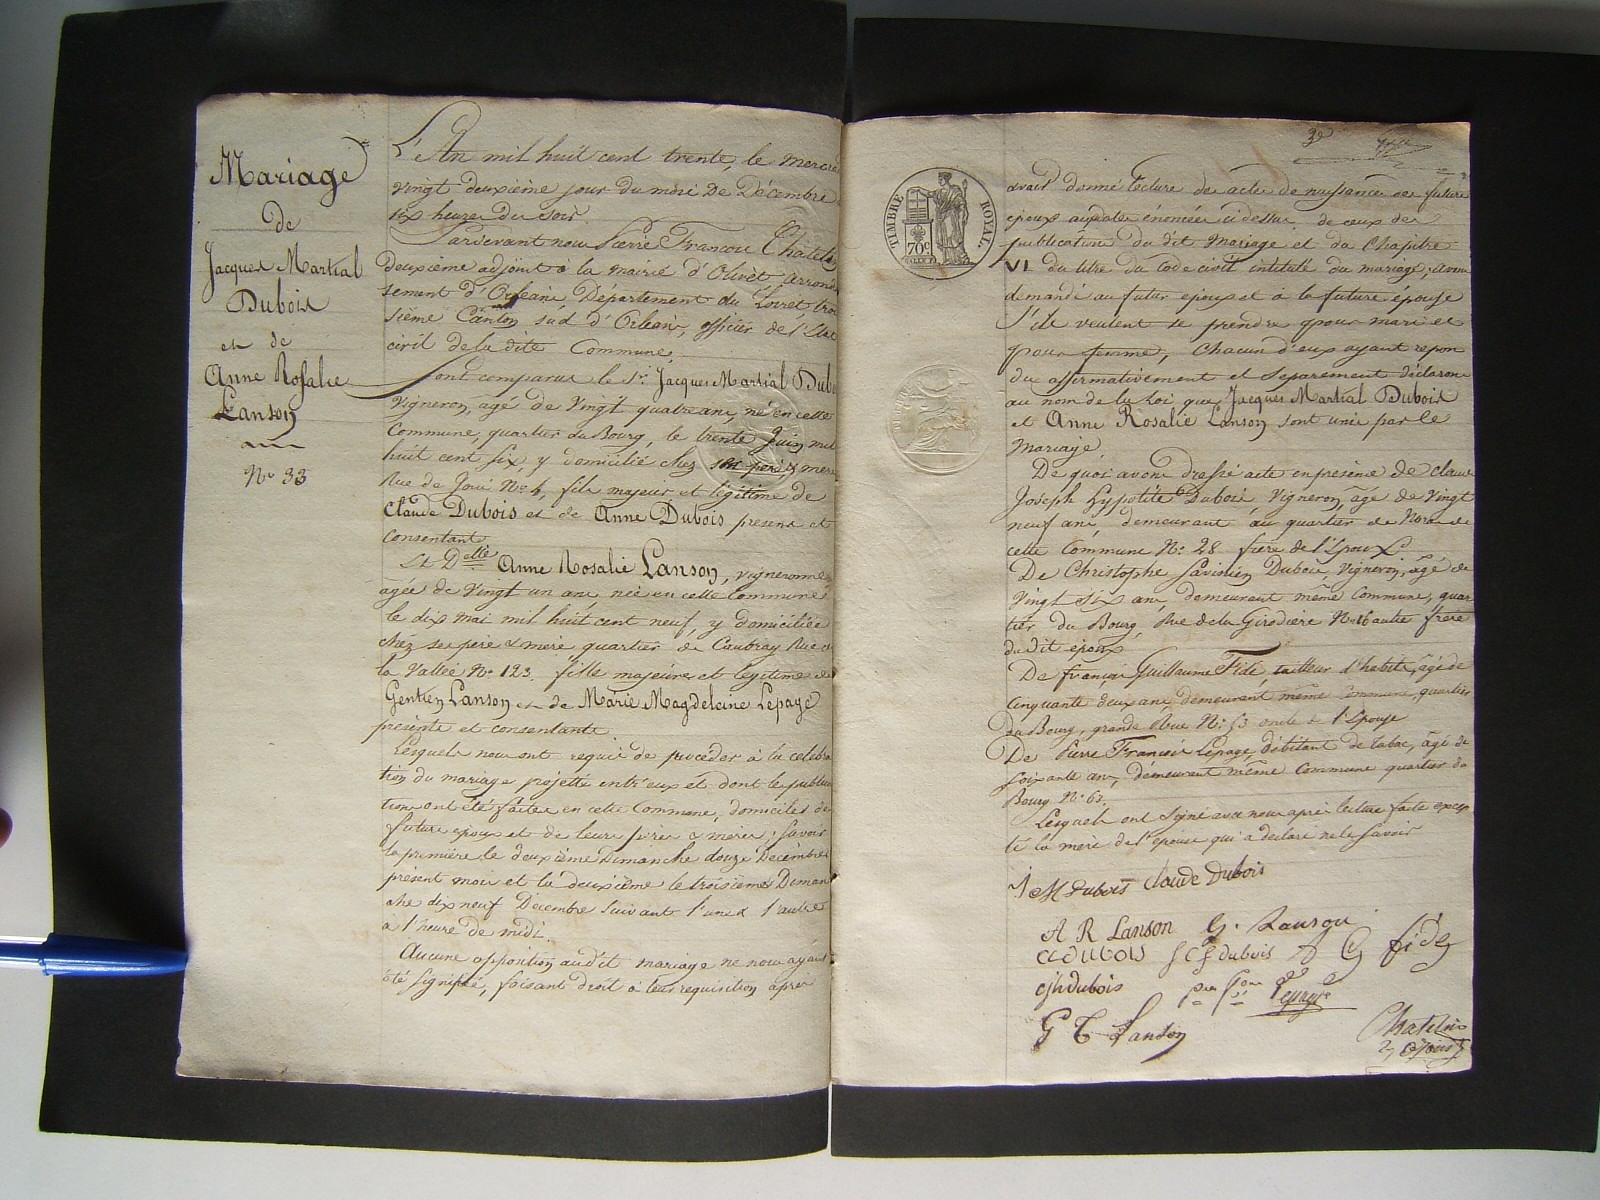 Mariage
de
Jacques Martial
Dubois
et de
Anne Rosalie
Lanson
No 33
L'An mil huit cent trente, le mercre
vingt deuxième jour du mois De Décembre
six heures du soir.
Pardevant nous Pierre Francois Chatelin
deuxième adjoint à la mairie d'Olivet arrondis
sement d'Orléans, Département du Loiret, troi
sième Canton sud d'Orléans, officier de l'Etat
civil de la dite Commune.
Sont comparus le Sr. Jacques Martial Dubois
Vigneron, agé de Vingt quatre ans, né en cette
Commune, quartier du Bourg, le trente Juin mil
huit cent six, y domicilié chez ses père & mere
Rue de No 4, fils majeur et légitime de
Claude Dubois et de Anne Dubois présens et
consentant
Et Delle Anne Rosalie Lanson, vigneronne
agée de Vingt un ans, née en cette Commune
le dix mai mil huit cent neuf, y domiciliée
chéz ses père & mère quartier de Caubray Rue de
la Vallée No 123. fille majeure et légitime de
Gentien Lanson et de Marie Magdeleine Lepage
présente et consentante.
Lesquels nous ont requis de procéder à la celebra
tion du mariage projetté entr'eux et dont les publica
tions ont été faites en cette Commune, domiciles des
futurs epoux et de leurs pères & mères; Savoir
la première le deuxième Dimanche douze Decembre
présent mois et la deuxième le troisième Diman
che dix neuf Decembre Suivant l'une & l'autre
à l'heure de midi.
Aucune opposition audit mariage ne nous ayant
été signifiée, faisant droit à leur requisition après
TIMBRE ROYAL.
70c
avoir donné lecture des actes de naissance des futurs
epoux aux dates énoncées ci dessus de ceux des
publications du dit Mariage et du Chapitre
VI du titre du Code civil intitulé du mariage, avons
demandé au futur epoux et à la future épouse
s'ils veulent se prendre pour mari et
pour femme, Chacun d'eux ayant repon
du affirmativement et Séparement déclarons
au nom de la Loi que Jacques Martial Dubois
et Anne Rosalie Lanson sont unis par le
Mariage.
De quoi avons dressé acte en présence de claude
Joseph hypolite Dubois, vigneron, âgé de Vingt
neuf ans, demeurant au quartier du Nord de
cette Commune No. 28 frère de l'Epoux.
De Christophe Savinien Dubois, Vigneron, âgé de
Vingt six ans, demeurant même Commune, quar
tier du Bourg, Rue de la Girodière No. 16 autre frère
du dit époux
De françois Guillaume Fidé, tailleur d'habits, âgé de
cinquante deux ans, demeurant même Commune, quartier
du Bourg, grande Rue No. 53 oncle de l'Epouse
De Pierre Francois Lepage, Débitant de tabac, âgé de
soixante ans, demeurant même Commune quartier du
Bourg No. 63.
Lesquels ont signé avec nous après lecture faite excep
té la mère de l'épouse qui a déclaré ne le Savoir
J M Dubois Claude Dubois
A R Lanson G. Lanson
a dubois S C dubois F G fidé
cjh dubois pre fois Lepage
G T Lanson
Chatelin
2e adjoint